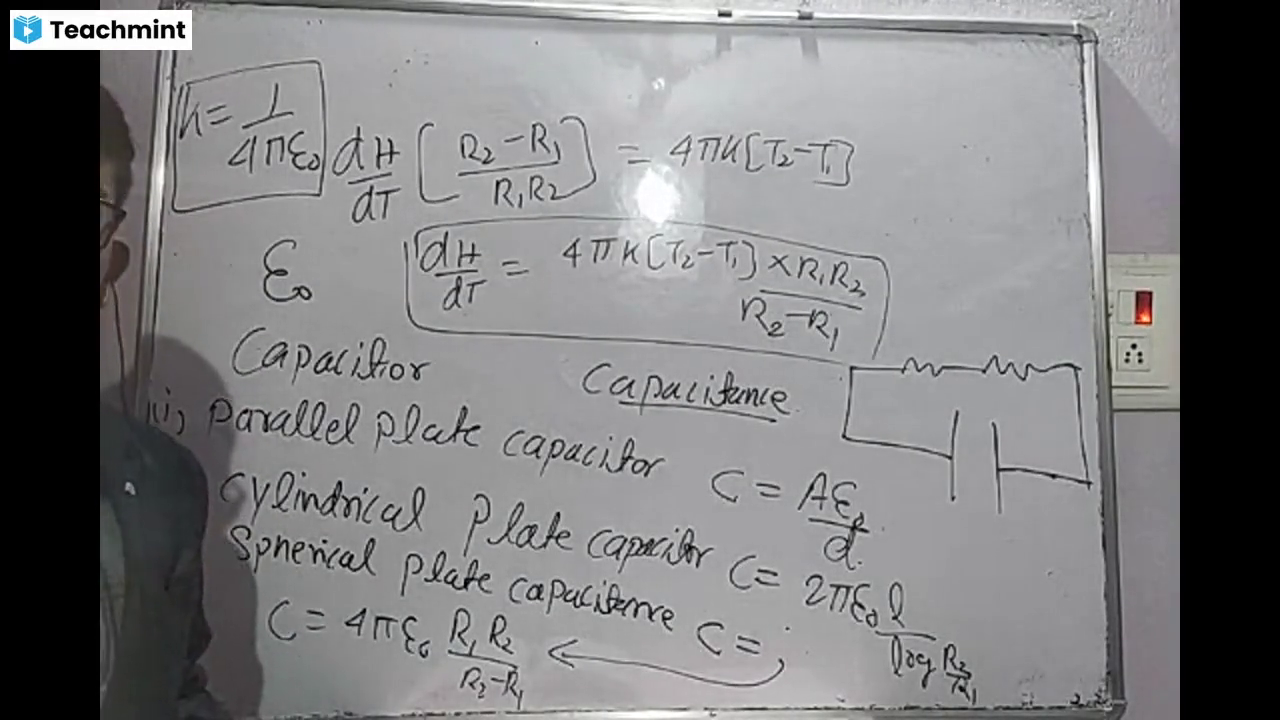 Teachmint
K = 1/4πε₀
dH/dT [R₂-R₁/R₁R₂] = 4πK[T₂-T₁]
dH/dT = 4πK[T₂-T₁] × R₁R₂/R₂-R₁
ε₀
Capacitior
Capacitance
ii, Parallel plate capacitor C = Aε₀/d.
Cylindrical plate capacitor C = 2πε₀l/log R₂/R₁
Spherical plate capacitance C = ;
C = 4πε₀ R₁R₂/R₂-R₁